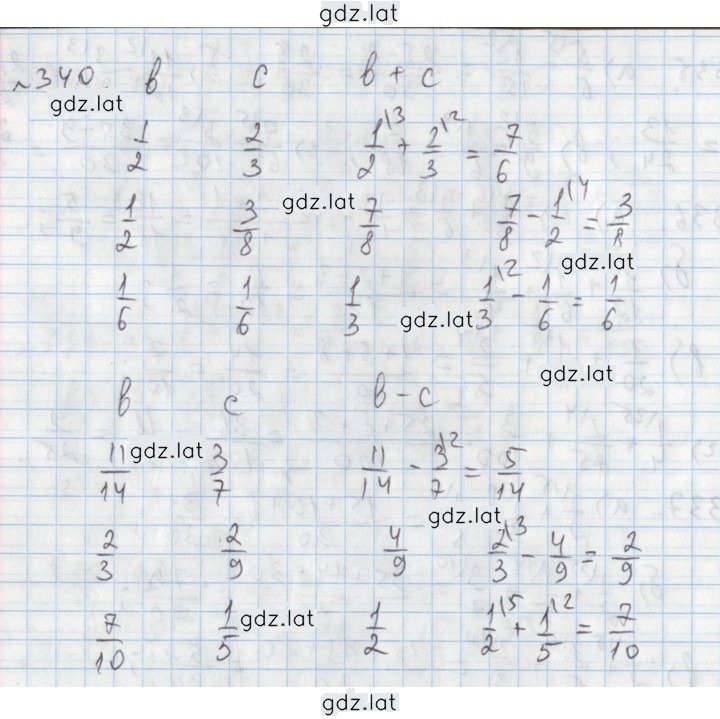 gdz.lat
№340. в c в + c
gdz.lat
1/2 2/3 1\3/2 + 2\2/3 = 7/6
1/2 3/8 gdz.lat 7/8 7/8 - 1\4/2 = 3/8
gdz.lat
1/6 1/6 1/3 gdz.lat 1\2/3 - 1/6 = 1/6
gdz.lat
в c в - c
11/14 gdz.lat 3/7 11/14 - 3\2/7 = 5/14
gdz.lat
2/3 2/9 4/9 2\3/3 - 4/9 = 2/9
7/10 1/5 gdz.lat 1/2 1\5/2 + 1\2/5 = 7/10
gdz.lat